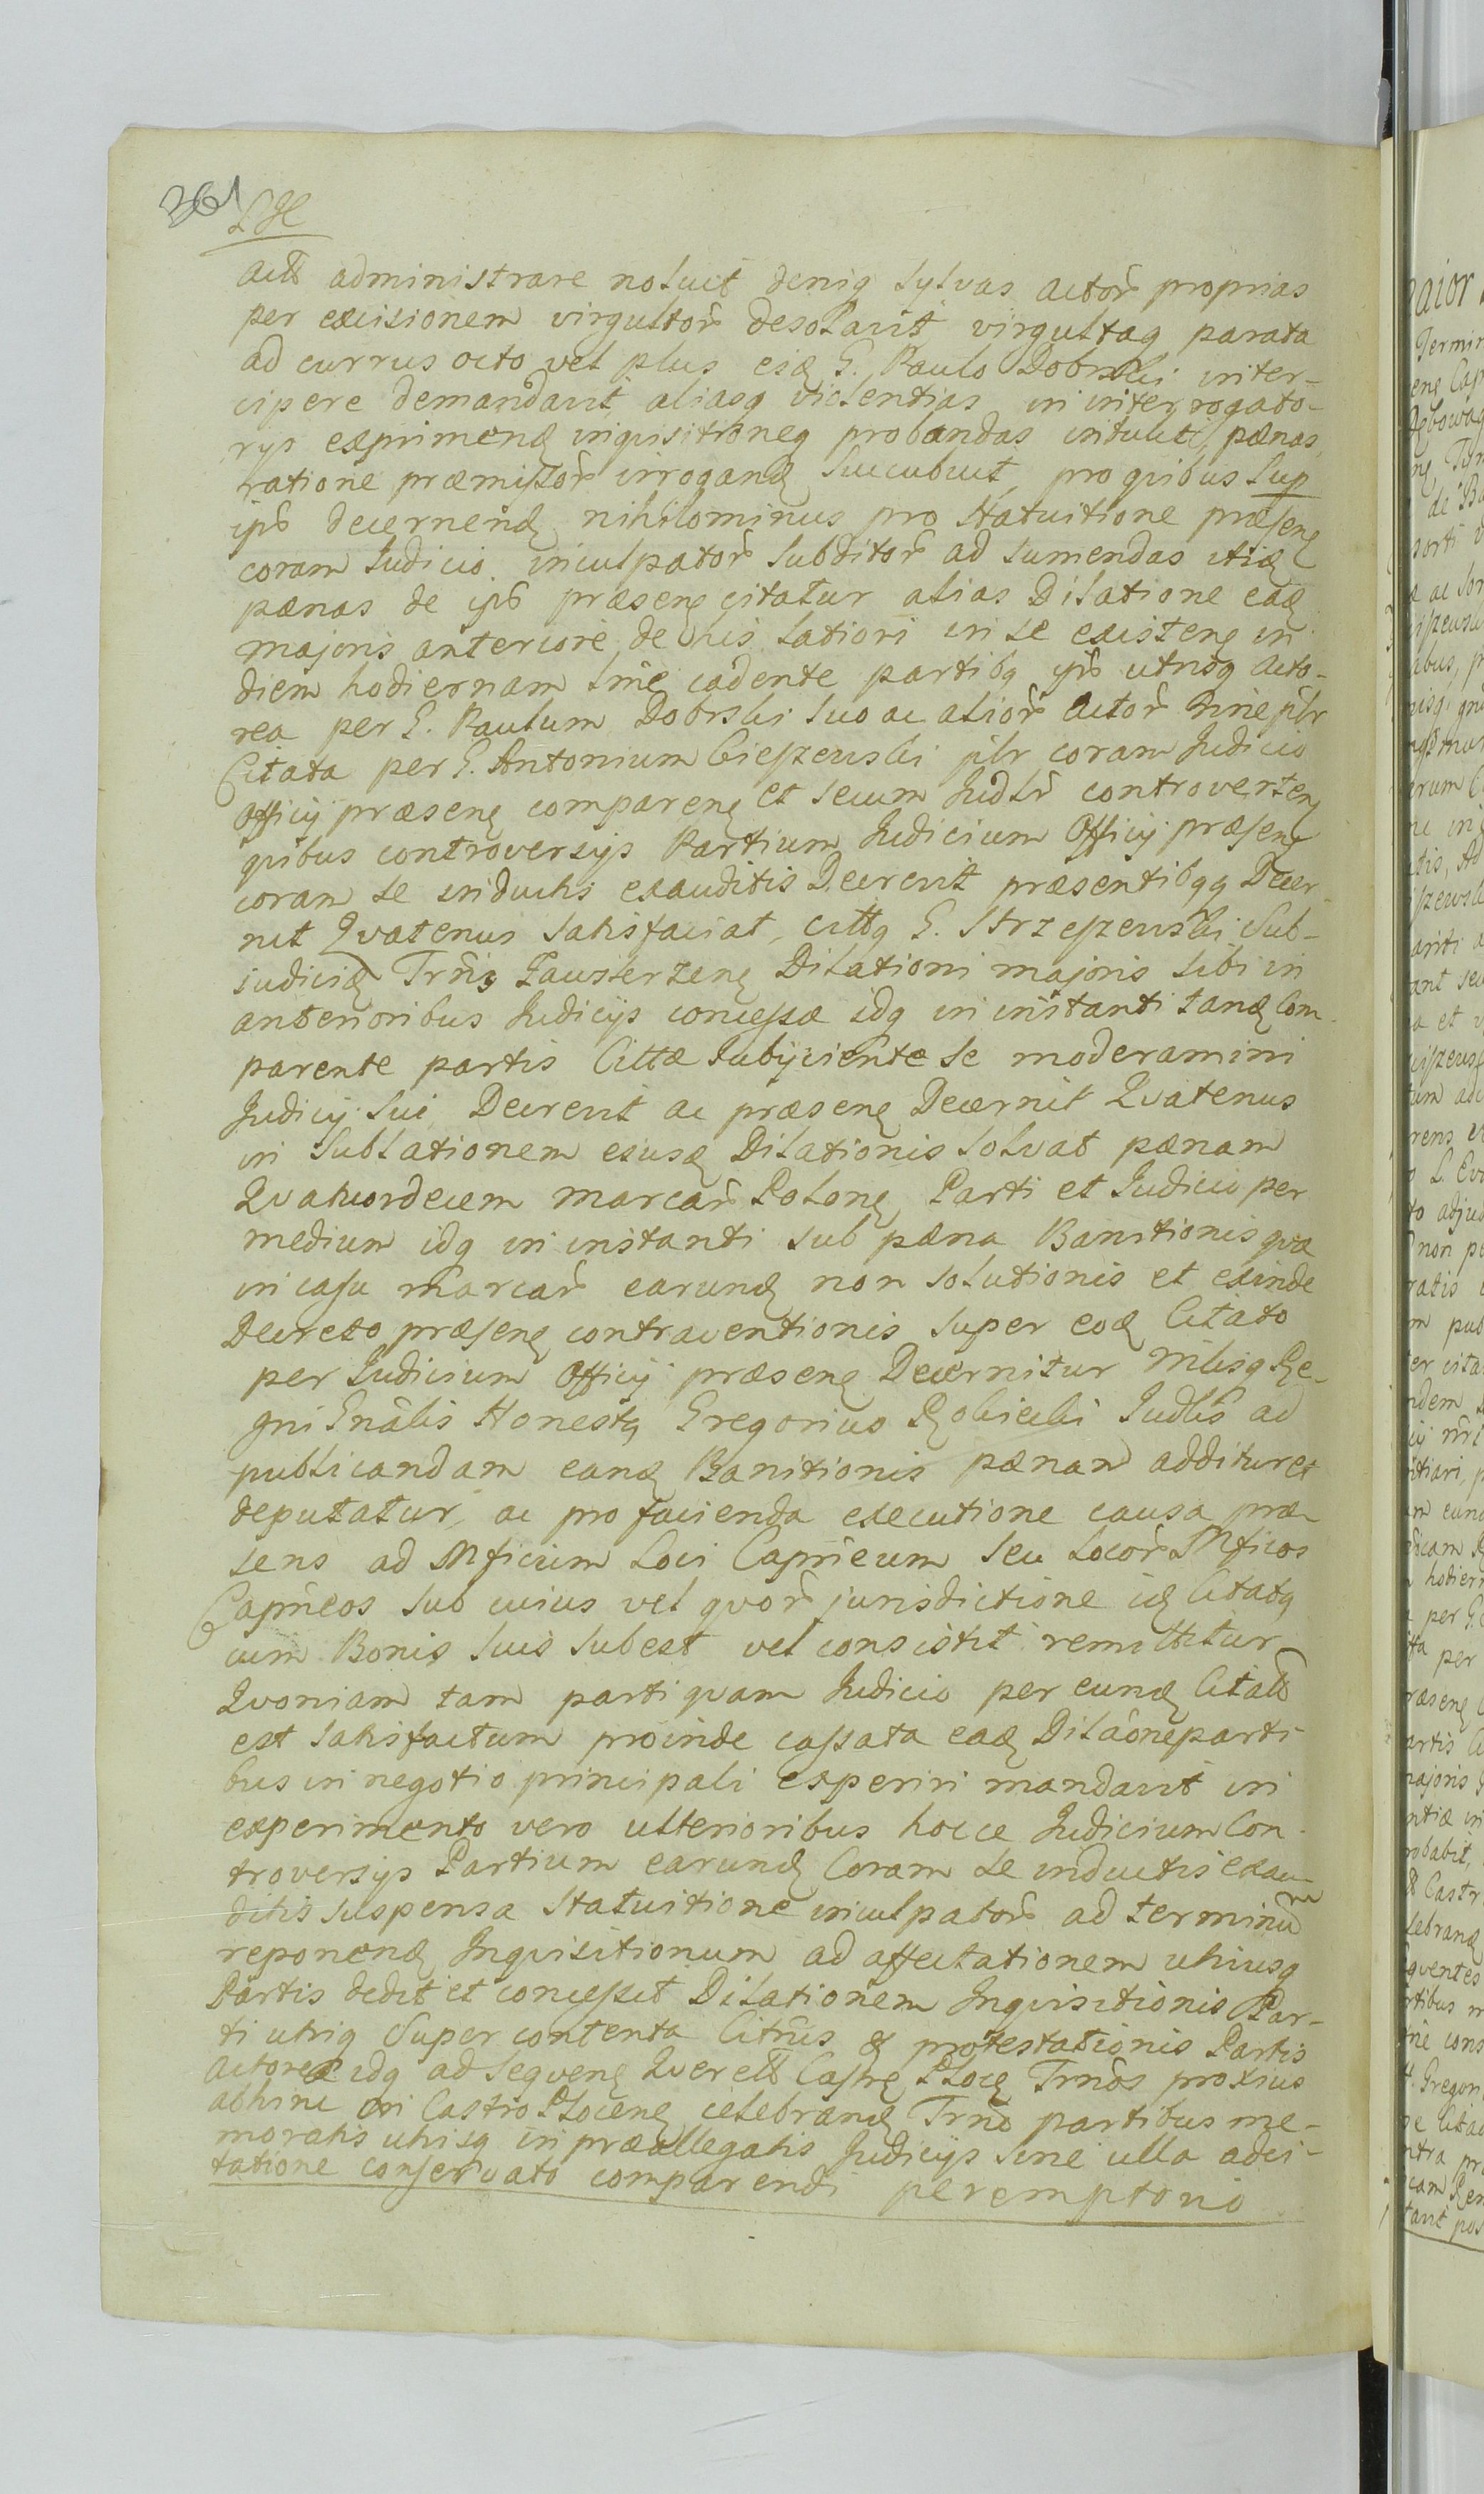 361
act̃o administrare noluit deniq sylvas actor̃ proprias
per excisionem virgultor̃ desolavit virgultaq parata
ad currus octo vel plus eidę G. Paulo Dobrski inter-
cipere demandavit aliasq violentias in interrogato-
rys exprimendę inquisitioneq probandas intulit, pænas
ratione præmissor̃ irrogandę succubuit, pro quibus sup
ip̃o decernendę nihilominus pro statuitione præsenę
coram Judicio inculpator̃ subditor̃ ad sumendas
pænas de ip̃o præsenę citatur alias Dilatione eadę
majoris anteriore de his latiori in se existenę in
diem hodiernam cadente partibq ip̃o utrisq acto-
rea per G. Paulum Dobrski suo ac alior̃ actor̃ nrie plr
Citata per G. Antonium Cieszewski plr coram Judicio
Officij præsenę comparenę et secum Judlr controvertenę
quibus controversijs Partium Judicium Officij præsenę
coram se inductis exauditis Decrevit præsentibqq Decer
nit Qvatenus satisfaciat, cittq G. Strzeszewski Sub-
judicię Trñis Dilationi majoris sibi in
anterioribus Judicijs concessæ idq in instanti tandę Com-
parente partis Cittæ subijciente se moderamini
Judicij sui Decrevit ac præsenę Decernit Qvatenus
in Sublationem eiusdę Dilationis solvat pænam
Qvatuordecem marcar̃ Polonę Parti et Judicio per
medium idq in instanti sub pæna Banitionis qvæ
in casu marcar̃ earundę non solutionis et exinde
Decreto præsenę contraventionis super eodę Citato
per Judicium Officij præsenę Decernitur Re-
gni Gnãlis Honestq Gregorius Robicki Judlis ad
publicandam eandę Banitionis pænam additur et
deputatur, ac pro facienda executione causa præ
sens ad Mficum Loci Capñeum seu Locor̃ Mficos
Capñeos sub cuius vel qvor̃ jurisdictione idę Citatq
cum Bonis suis subest vel consistit remittitur
Qvoniam tam parti qvam Judicio per eundę Citat̃o
est satisfactum proinde cassata eadę Dilãoneparti
bus in negotio principali experiri mandavit in
experimento vero ulterioribus hocce Judicium Con-
troversijs Partium earundę Coram se inductis exau-
ditis suspensa statuitione inculpator̃ ad terminum
reponendę Inqvisitionum ad affectationem utriusq
Partis dedit et concessit Dilationem Inqvisitionis Par-
ti utriq Super contenta Citñis & protestationis Partis
Actoreæ idq ad seqvenę Qverell Castrę Plocę Trños proxius
abhinc in Castro Plocenę celebrandę Trñō partibus me-
moratis utrisq in præallegatis Judicijs sine ulla adci-
tatione conservato comparendi peremptorio